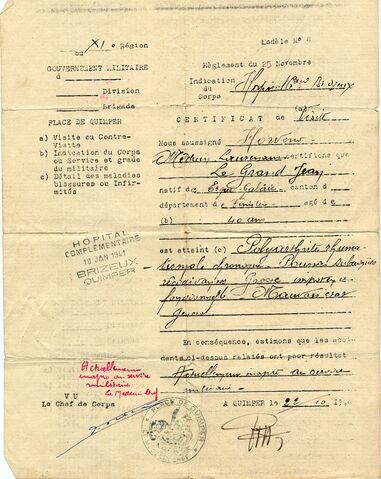 ou XIe Région
Modèle No 8
GOUVERNEMENT MILITAIRE
d
Division
Brigade
Règlement du 25 Novembre
Indication
du
Corps
PLACE DE QUIMPER
CERTIFICAT de Visite
a) Visite ou Contre-
Visite
b) Indication du Corps
ou Service et grade
du militaire
c) Détail des maladies
blessures ou Infir-
mités
Nous soussigné
Médecin certifions que
Le Grand Jean
natif de canton d
département d Finistère agé de
(b) 40 ans
HOPITAL
COMPLÉMENTAIRE
10 JAN 1941
BRIZEUX
QUIMPER
est atteint (c) Polyarthrite rhuma-
tismale chronique.
Grosse impotence
fonctionnelle. Mauvais état
général
En conséquence, estimons que les acci-
dents ci-dessus relatés ont pour résultat
Actuellement inapte au service
militaire
Actuellement
inapte au service
militaire
Le Médecin Chef
VU
Le Chef de Corps
A QUIMPER le 22 10
PLACE DE QUIMPER